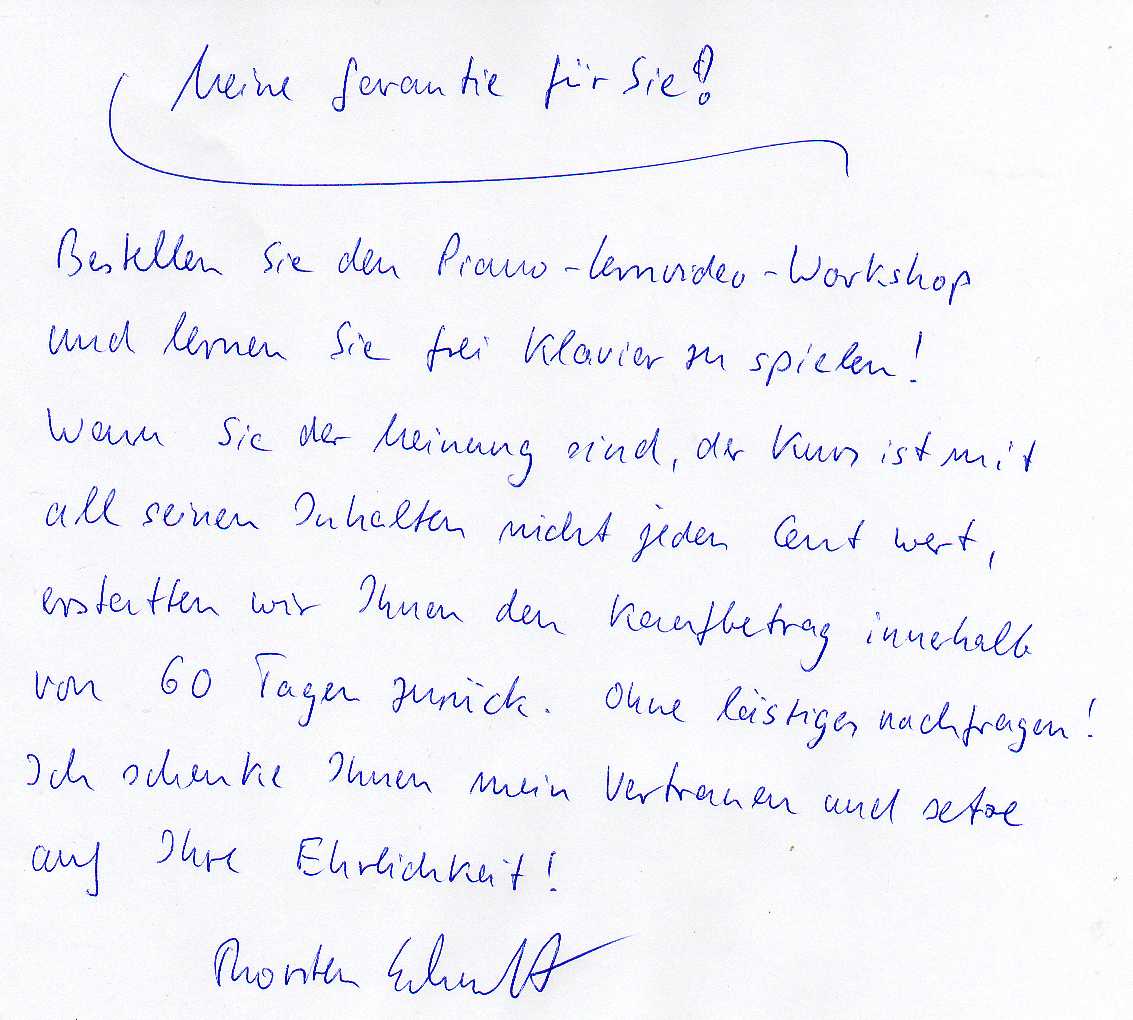 Meine Garantie für Sie!
Bestellen Sie den Piano-Lernvideo-Workshop
und lernen Sie frei Klavier zu spielen!
Wenn Sie der Meinung sind, der Kurs ist mit
all seinen Inhalten nicht jeden Cent wert,
erstatten wir Ihnen den Kaufbetrag innerhalb
von 60 Tagen zurück. Ohne lästiges nachfragen!
Ich schenke Ihnen mein Vertrauen und setze
auf Ihre Ehrlichkeit!
Thorsten